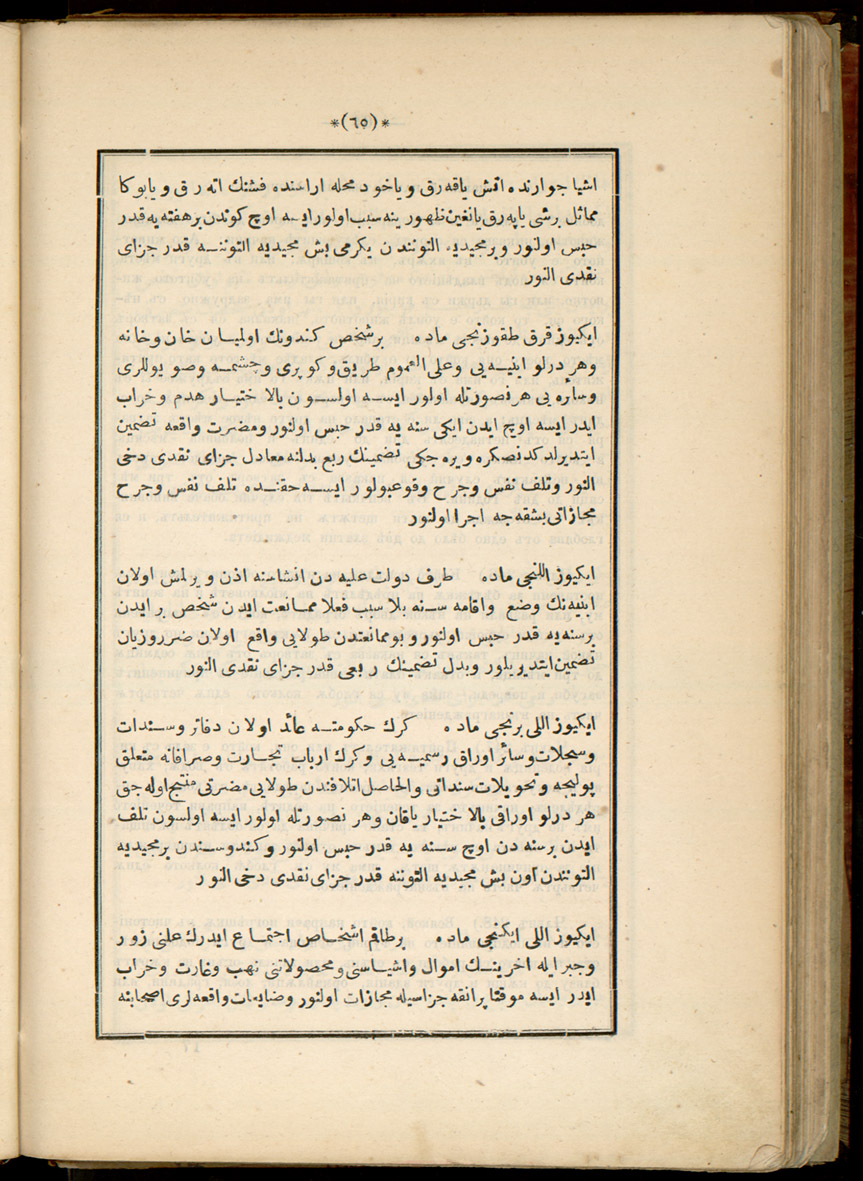 *(٦٥)*
اشیا جوارنده اتش یاقه‌رق و یاخود محله اراسنده فشنك اته‌رق و یابوکا
مماثل برشی یاپه‌رق یانغین ظهورینه سبب اولور ایسه اوچ کوندن برهفته‌یه قدر
حبس اولنور و برمجیدیه التونندن یکرمی بش مجیدیه التوننه قدر جزای
نقدی النور
ایکیوز قرق طقوزنجی ماده برشخص کندونك اولمیان خان و خانه
وهر درلو ابنیه‌یی وعلی العموم طریق و کوپری و چشمه وصو یوللری
وسائره‌یی هر نصورتله اولور ایسه اولسون بالاختیار هدم وخراب
ایدر ایسه اوچ ایدن ایکی سنه‌یه قدر حبس اولنور و مضرت واقعه تضمین
ایتدیرلدکدنصکره ویره‌جکی تضمینك ربع بدلنه معادل جزای نقدی دخی
النور وتلف نفس وجرح وقوعبولور ایسه حقنده تلف نفس وجرح
مجازاتی بشقه‌جه اجرا اولنور
ایکیوز اللنجی ماده طرف دولت علیه‌دن انشاسنه اذن ویرلمش اولان
ابنیه‌نك وضع واقامه‌سنه بلا سبب فعلا ممانعت ایدن شخص بر ایدن
برسنه‌یه قدر حبس اولنور و بوممانعتدن طولایی واقع اولان ضرروزیان
تضمین ایتدیریلور وبدل تضمینك ربعی قدر جزای نقدی النور
ایکیوز اللی برنجی ماده کرك حکومته عائد اولان دفاتر وسندات
وسجلات وسائر اوراق رسمیه‌یی وکرك ارباب تجارت وصرافانه متعلق
پولیچه وتحویلات سنداتی والحاصل اتلافندن طولایی مضرتی منتج اوله‌جق
هر درلو اوراقی بالاختیار یاقان وهر نصورتله اولور ایسه اولسون تلف
ایدن برسنه‌دن اوچ سنه‌یه قدر حبس اولنور وکندوسندن برمجیدیه
التونندن اون بش مجیدیه التوننه قدر جزای نقدی دخی النور
ایکیوز اللی ایکنجی ماده برطاقم اشخاص اجتماع ایدرك علنی زور
وجبر ایله اخرینك اموال واشیاسنی ومحصولاتنی نهب وغارت وخراب
ایدر ایسه موقتا پرانقه جزاسیله مجازات اولنور وضایعات واقعه‌لری اصحابنه